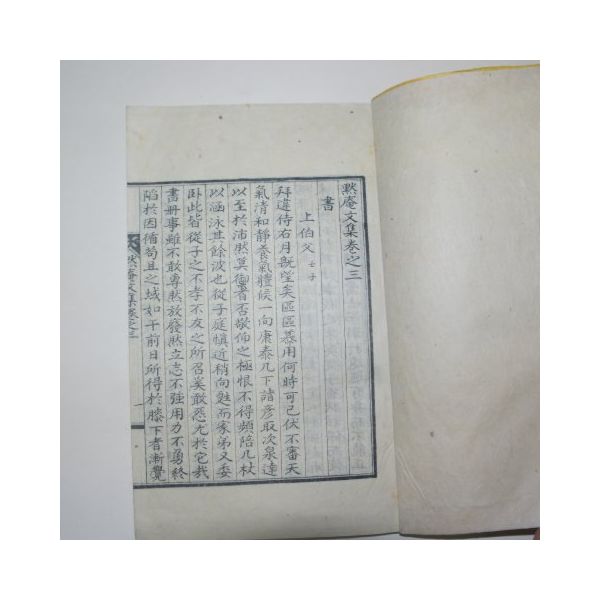 默庵文集卷之三
書
上伯父 壬子
拜違侍右月旣望矣區區慕用何時可已伏不審天
氣清和靜養氣體候一向康泰几下諸彦取次泉達
以至於沛然莫御者否敬佈之極恨不得頻陪几杖
以涵泳其餘波也從子庭愼近稍向甦而家弟又委
臥此皆從子之不孝不友之所召奚敢怨尤於它哉
書册事雖不敢專然放發然立志不强用力不勇終
陷於因循苟且之域如干前日所得於膝下者漸覺
默庵文集卷之三
一